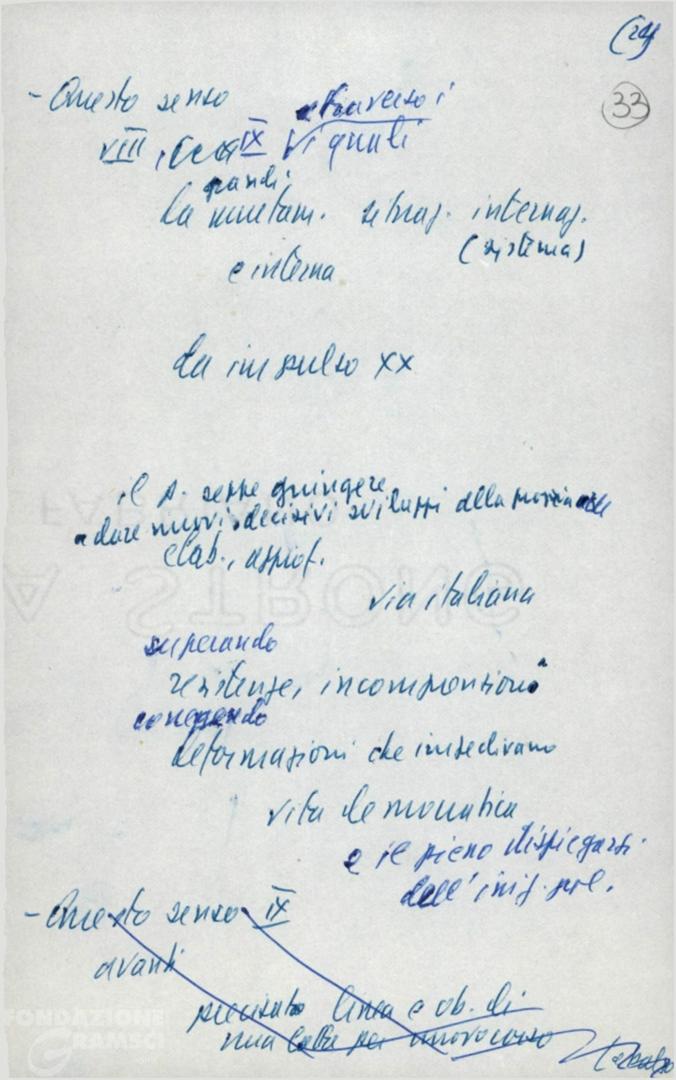 (24)
33
- Questo senso attraverso i
VIII, IX quali
grandi
la mutam. situaz. internaz.
(sistema)
e interna
da impulso XX
il p. seppe giungere
a dare nuovi e decisivi sviluppi della
elab., approf.
via italiana
superando
resistenze, incomprensioni
correggendo
deformazioni che impedivano
vita democratica
e il pieno dispiegarsi
dell'iniz. pol.
- Questo senso IX
avanti
precisato linea e ob. di
una lotta per nuovo corso
FONDAZIONE
GRAMSCI
STRONG